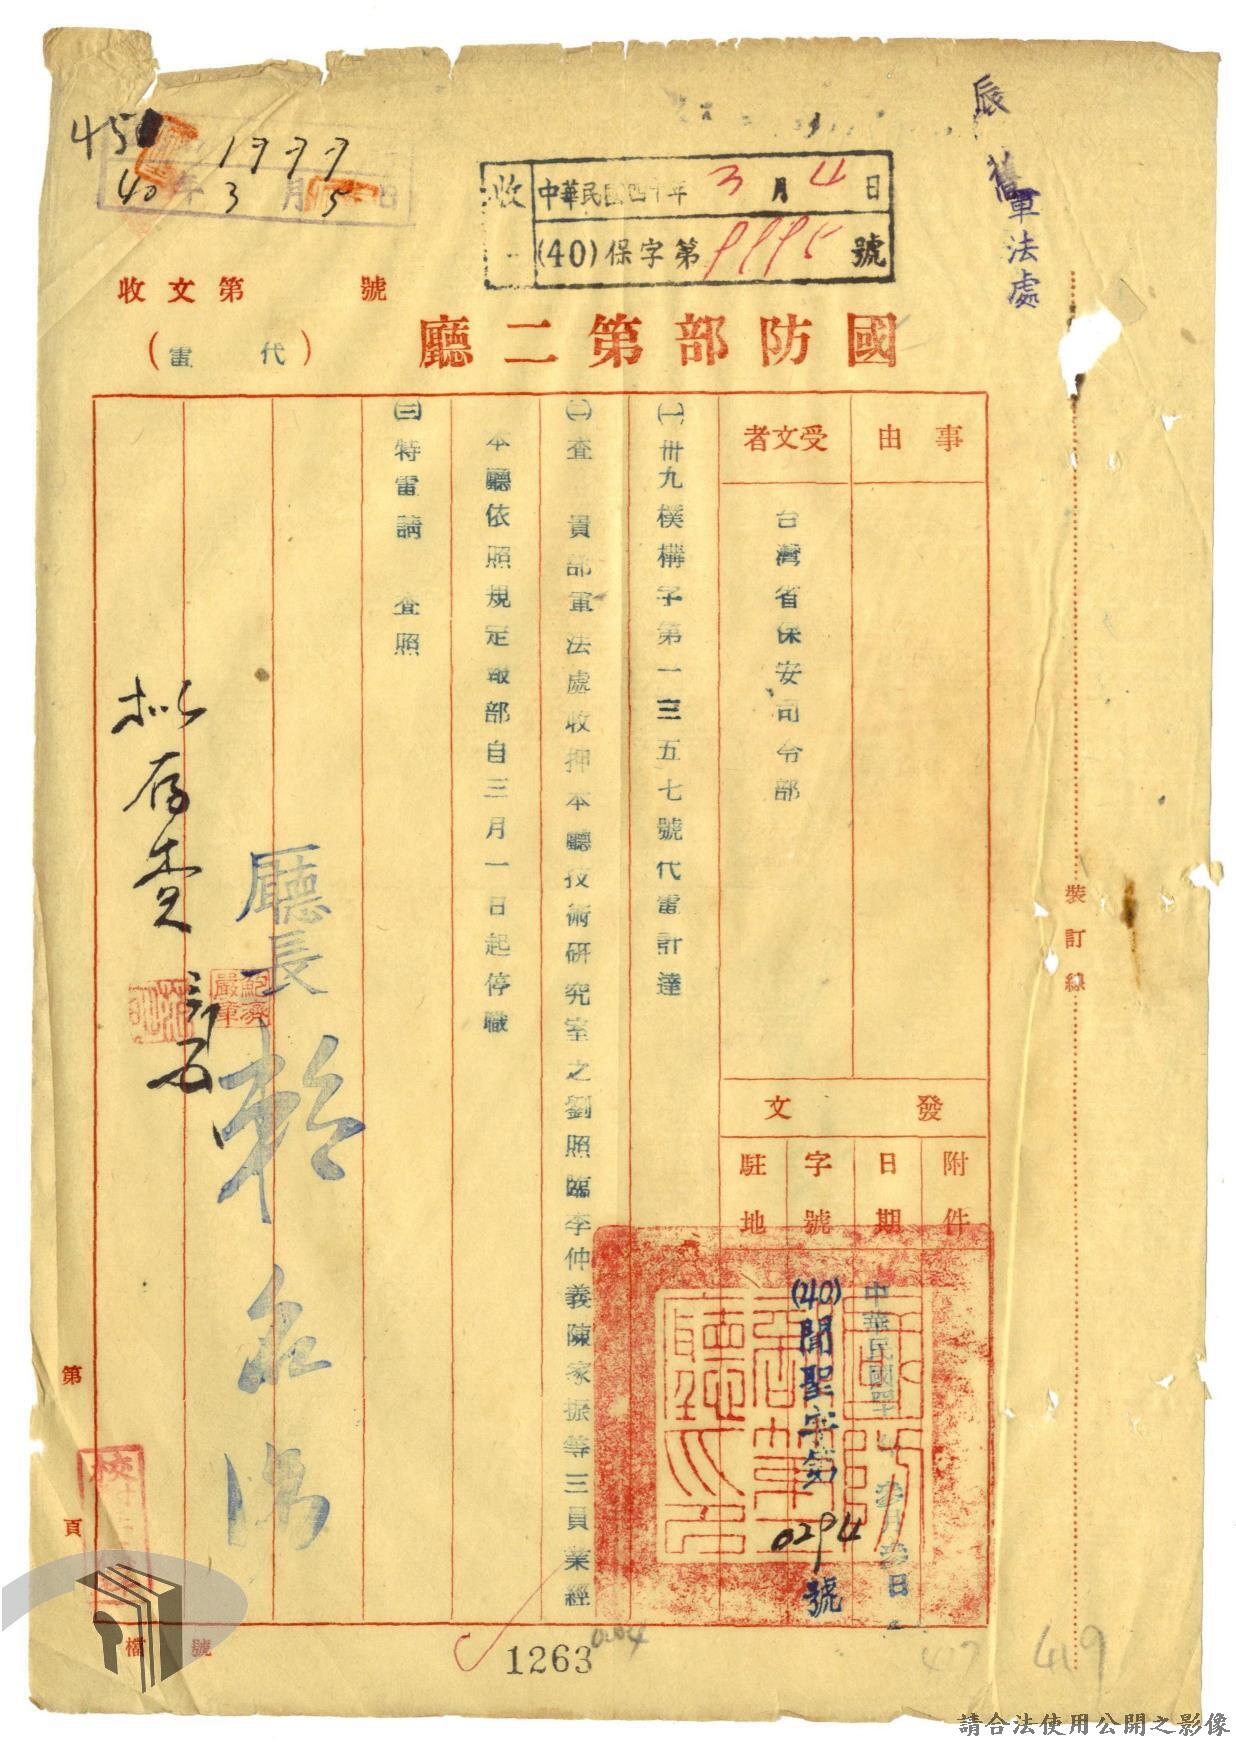 辰
軍法處
收
中華民國四十年3月4日
(40)保字第 號
45
1999
40年3月5日
收文第 號
國防部第二廳
(代電)
事由
受文者
台灣省保安司令部
發文
附件
日期
中華民國四十年 月 日
字號
(40)聞聖字第0294號
駐地
㈠卅九樸構字第一三五七號代電計達
㈡查 貴部軍法處收押本廳技術研究室之劉照臨李仲義陳家振等三員業經
本廳依照規定報部自三月一日起停職
㈢特電請 查照
廳長賴名湯
擬存查
裝訂線
第 頁
檔號
1263
419
請合法使用公開之影像